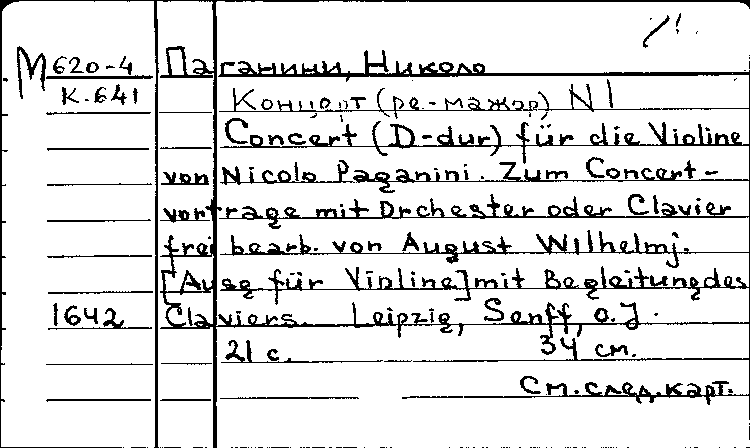 М 620-4 Паганини, Николо
К.641 Концерт (ре-мажор) N 1
Concert (D-dur) für die Violine
von Nicolo Paganini. Zum Concert-
vortrage mit Orchester oder Clavier
frei bearb. von August Wilhelmj.
[Ausg für Violine] mit Begleitung des
1642 Claviers. Leipzig, Senff, o.J.
21 с. 34 см.
См. след. карт.